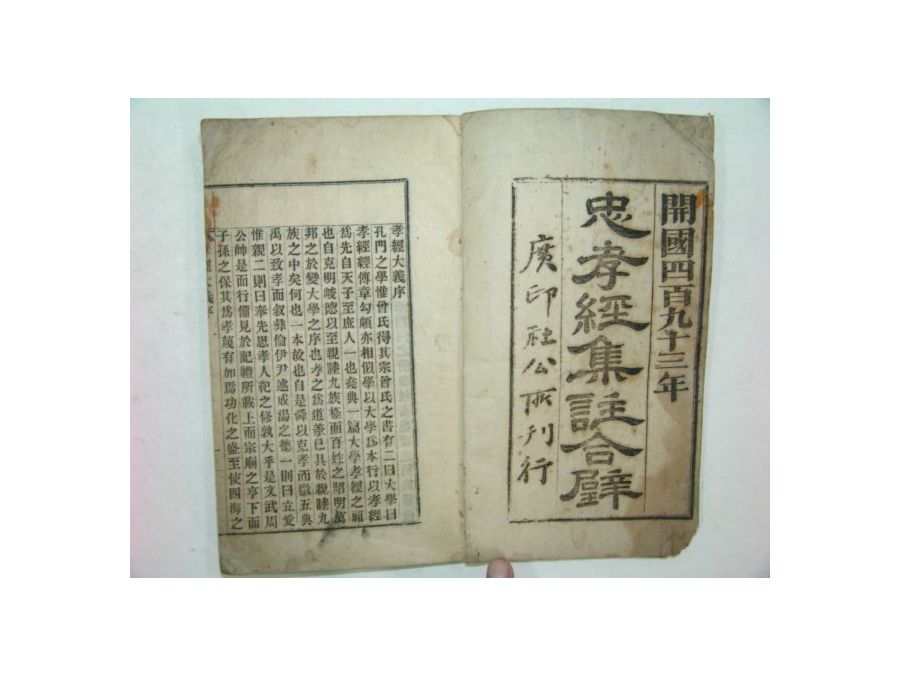 開國四百九十三年
忠孝經集註合壁
廣印社公所刊行
孝經大義序
孔門之學惟曾氏得其宗曾氏之書有二曰大學曰
孝經經傳章句頗亦相似學以大學爲本行以孝經
爲先自天子至庶人一也堯典一篇大學孝經之祖
也自克明峻德以至親睦九族極而百姓之昭明萬
邦之於變大學之序也孝之爲道蓋已具於親睦九
族之中矣何也一本故也自是舜以克孝而徽五典
禹以致孝而叙彛倫伊尹述成湯之德一則曰立愛
惟親二則曰奉先思孝人紀之修孰大乎是文武周
公帥是而行備見於記禮所載上而宗廟之享下而
子孫之保其爲孝蔑有加焉功化之盛至使四海之